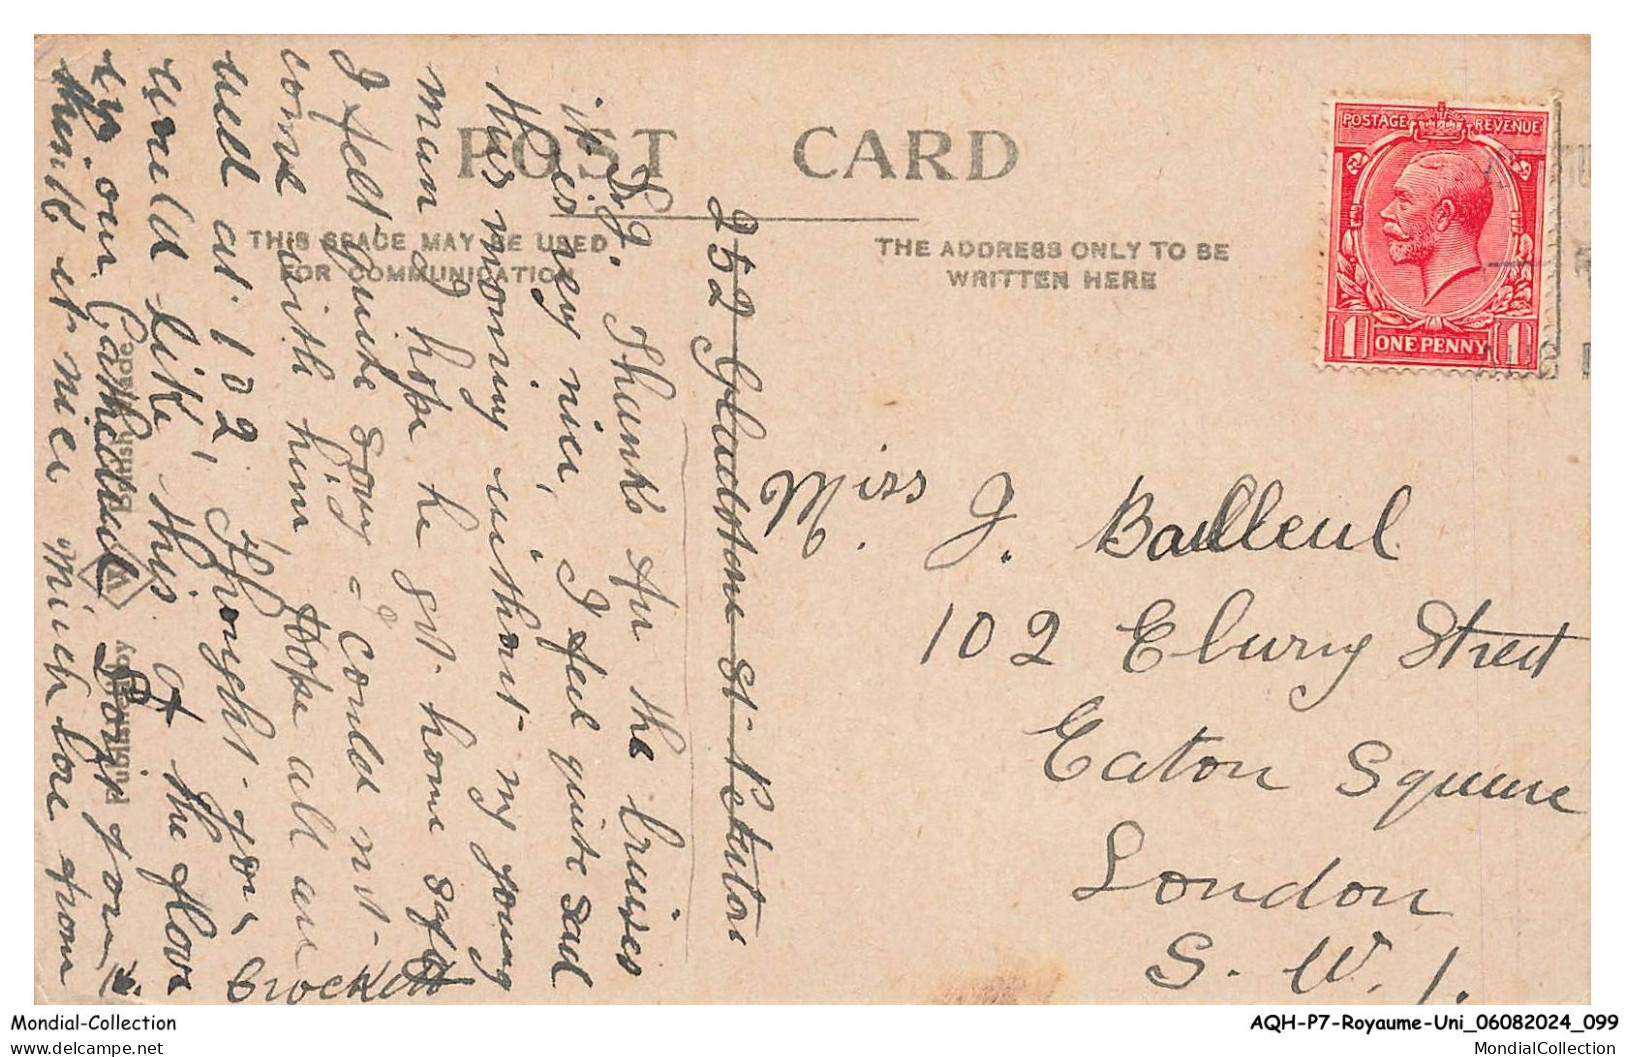 POST CARD
THIS SPACE MAY BE USED
FOR COMMUNICATION
THE ADDRESS ONLY TO BE
WRITTEN HERE
POSTAGE REVENUE
1 ONE PENNY 1
AUG
252 Gladstone St.
Dg. Thanks for the cruises
it is very nice, I feel quite sad
this morning without my young
man I hope he got home safe
I felt quite could not
come with him Hope all are
well at 102, thought you
would like this of the floor
in our Cathedral Don't you
think it nice Much love from
Crockett
Miss J. Bailleul
102 Ebury Street
Eaton Square
London
S. W. 1.
Published by W British Made
Mondial-Collection
AQH-P7-Royaume-Uni_06082024_099
Mondial-Collection.net
MondialCollection